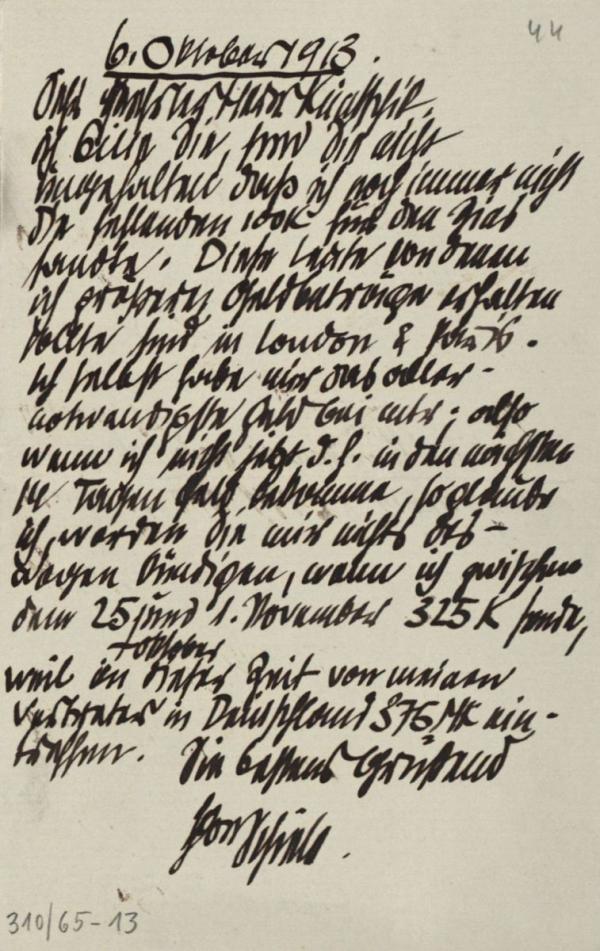 44
6. Oktober 1913.
Sehr geehrter Herr
ich bitte Sie, sind Sie nicht
ungehalten daß ich noch immer nicht
die fehlenden 100K für den Zins
sandte. Diese Leute von denen
ich größere Geldbeträge erhalten
sollte sind in London & Paris.
ich selbst habe nur das aller-
notwendigste Geld bei mir; also
wenn ich nicht jetzt d.h. in den nächsten
14 Tagen Geld bekomme, so glaube
ich, werden Sie mir nichts des-
wegen kündigen, wenn ich zwischen
dem 25 und 1. November 325 K sende,
+ Oktober
weil in dieser Zeit von meinen
Vertreter in Deutschland 376 MK ein-
treffen. Sie bestens Grüßend
Egon Schiele.
310/65-13